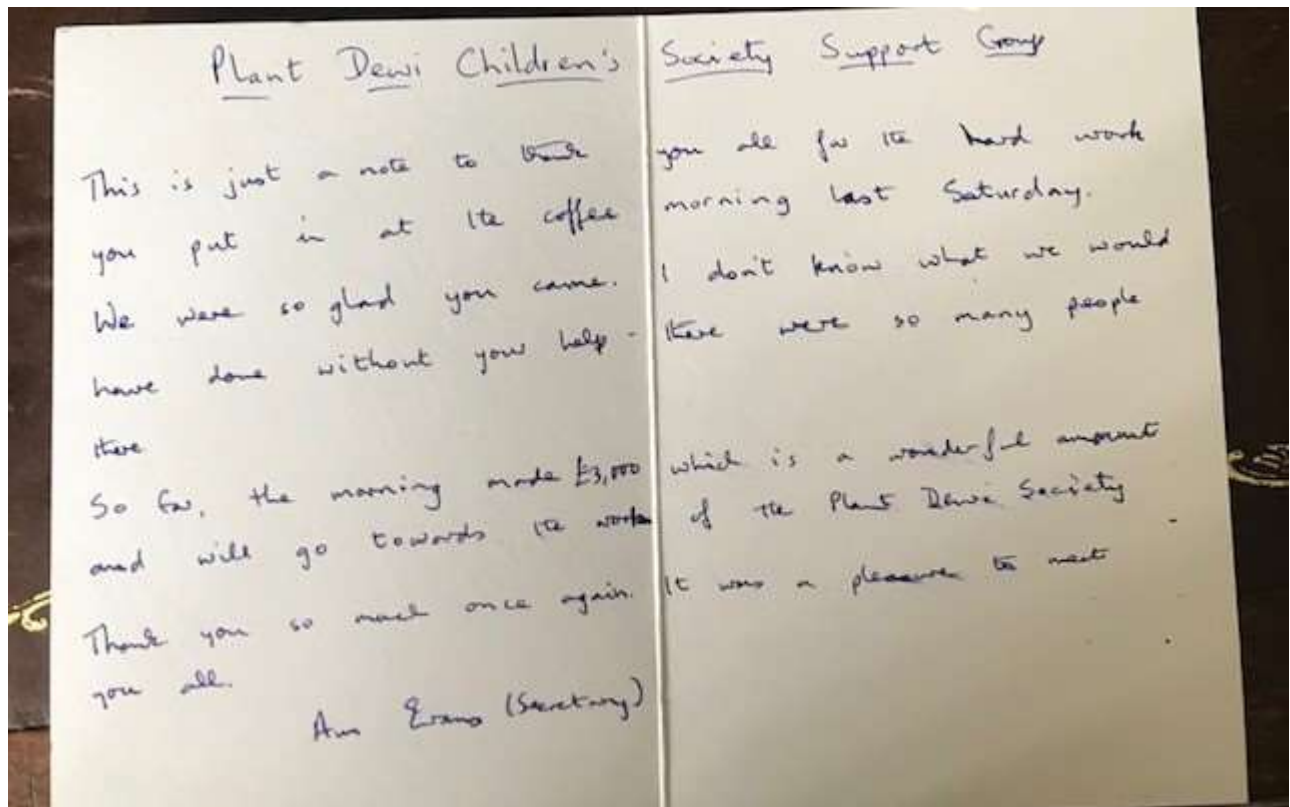 Plant Dewi Children's Society Support Group
This is just a note to thank you all for the hard work
you put in at the coffee morning last Saturday.
We were so glad you came. I don't know what we would
have done without your help - there were so many people
there
So far, the morning made £3,000 which is a wonderful amount
and will go towards the work of the Plant Dewi Society
Thank you so much once again. It was a pleasure to meet
you all.
Ann Evans (Secretary)